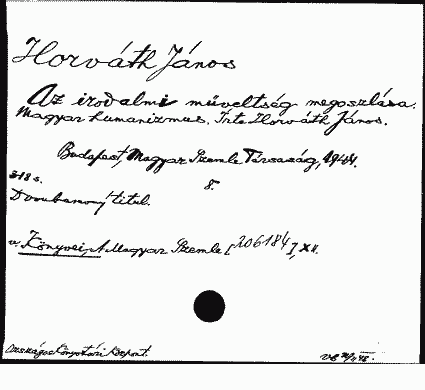 Horváth János
Az irodalmi műveltség megoszlása.
Magyar humanizmus. Irta Horváth János.
Budapest, Magyar Szemle Társaság, 1944.
318 s. 8.
titul.
v. Könyvei, A Magyar Szemle [206184], XII.
Országos Könyvtári Központ.